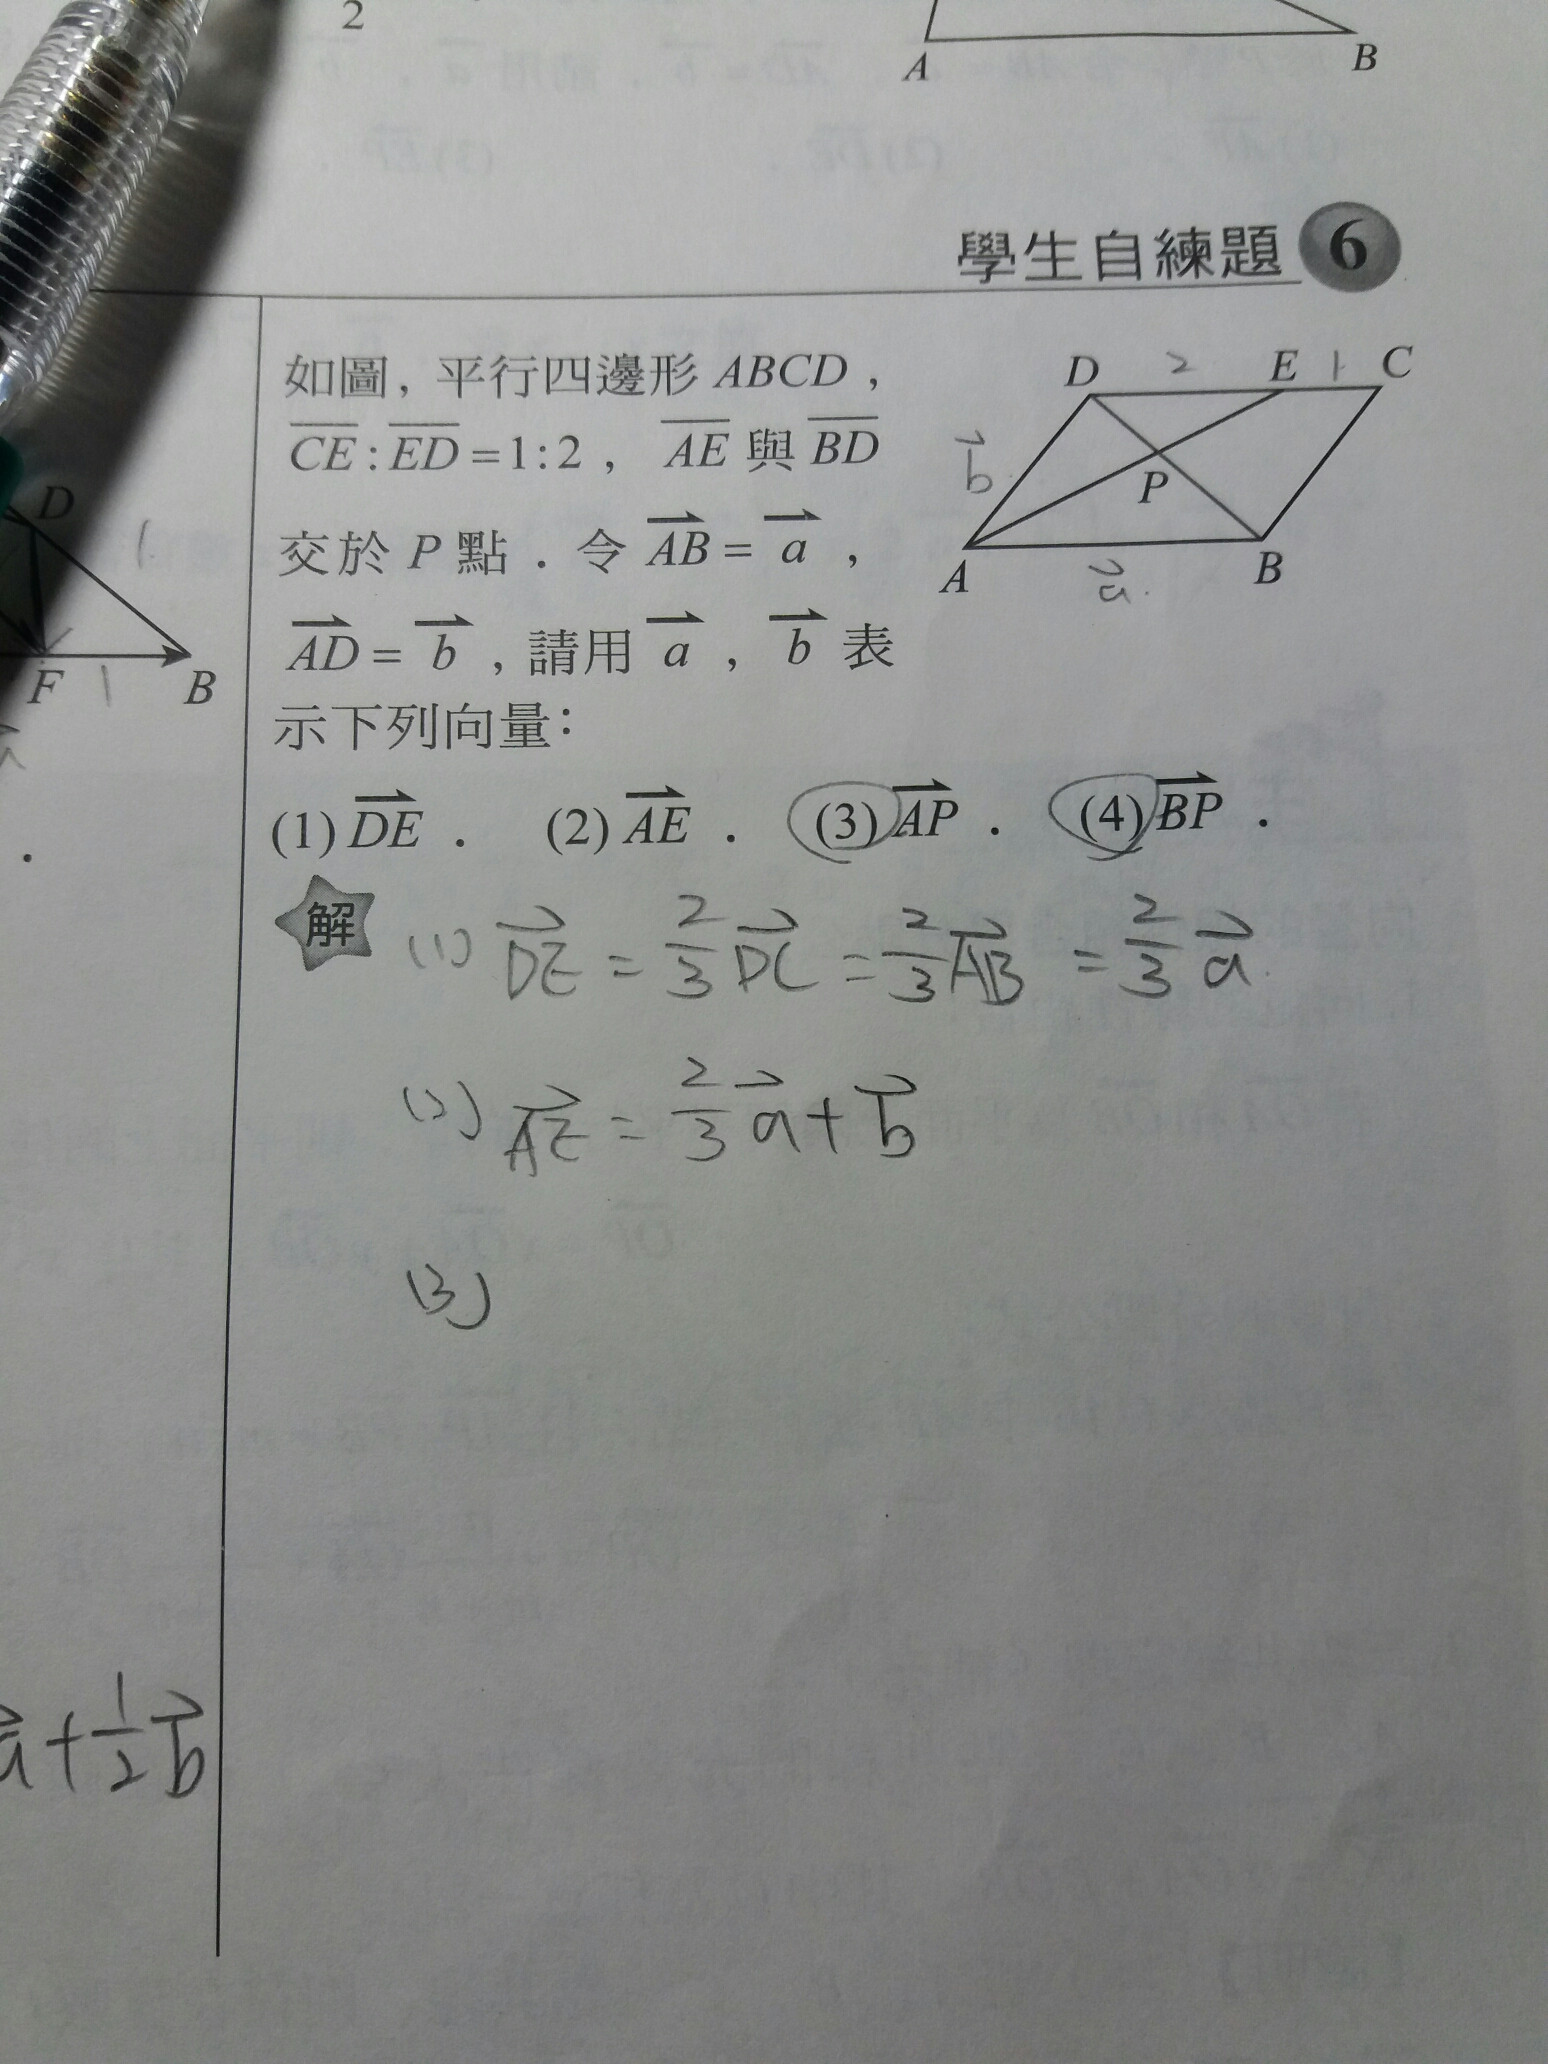 2
A B
學生自練題 6
如圖，平行四邊形 ABCD，
CE：ED＝1：2， AE 與 BD
交於 P 點．令 AB＝a，
AD＝b，請用 a，b 表
示下列向量：
(1) DE． (2) AE． (3) AP． (4) BP．
D 2 E 1 C
b
P
A a B
D 1
F 1 B
解 (1) DE = 2/3 DC = 2/3 AB = 2/3 a
(2) AE = 2/3 a + b
(3)
a + 1/2 b